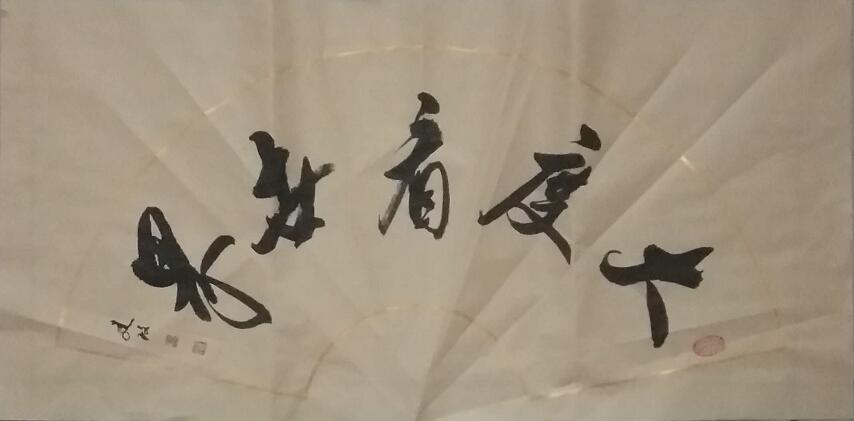 大度看世界